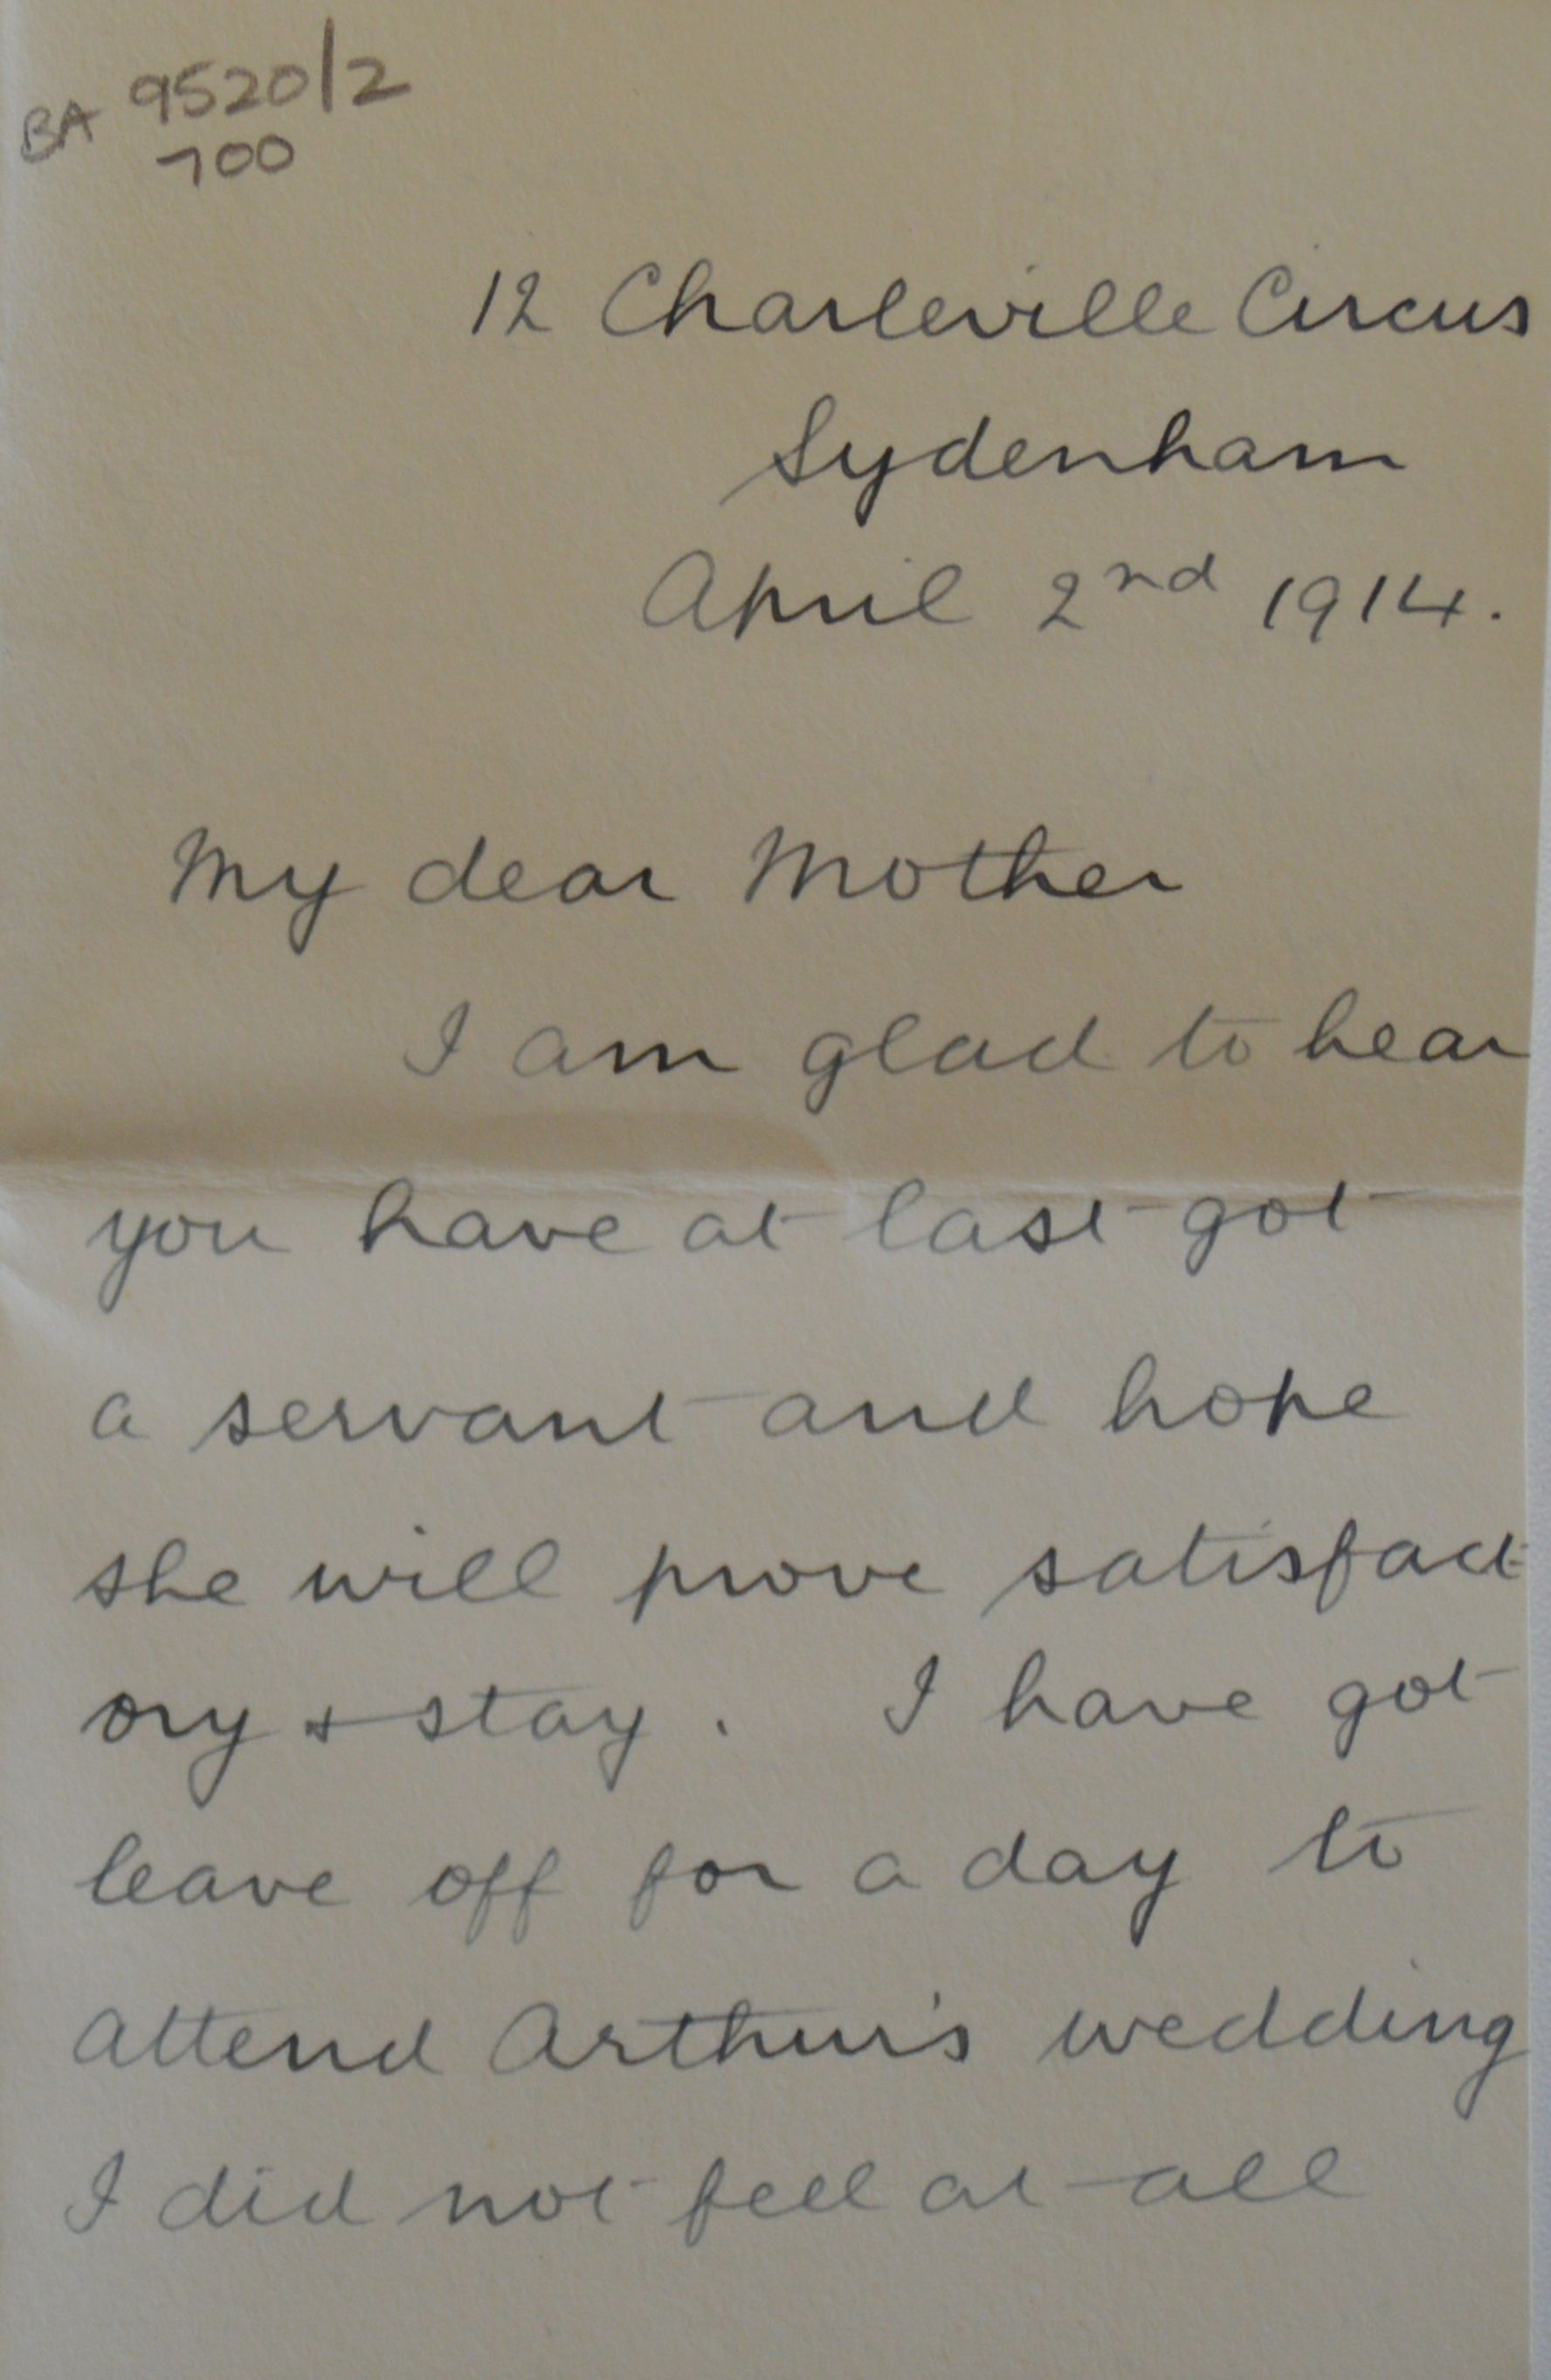 BA 9520/2
700
12 Charleville Circus
Sydenham
April 2nd 1914.
My dear Mother
I am glad to hear
you have at last got
a servant and hope
she will prove satisfact
ory & stay. I have got
leave off for a day to
attend Arthur's wedding
I did not feel at all